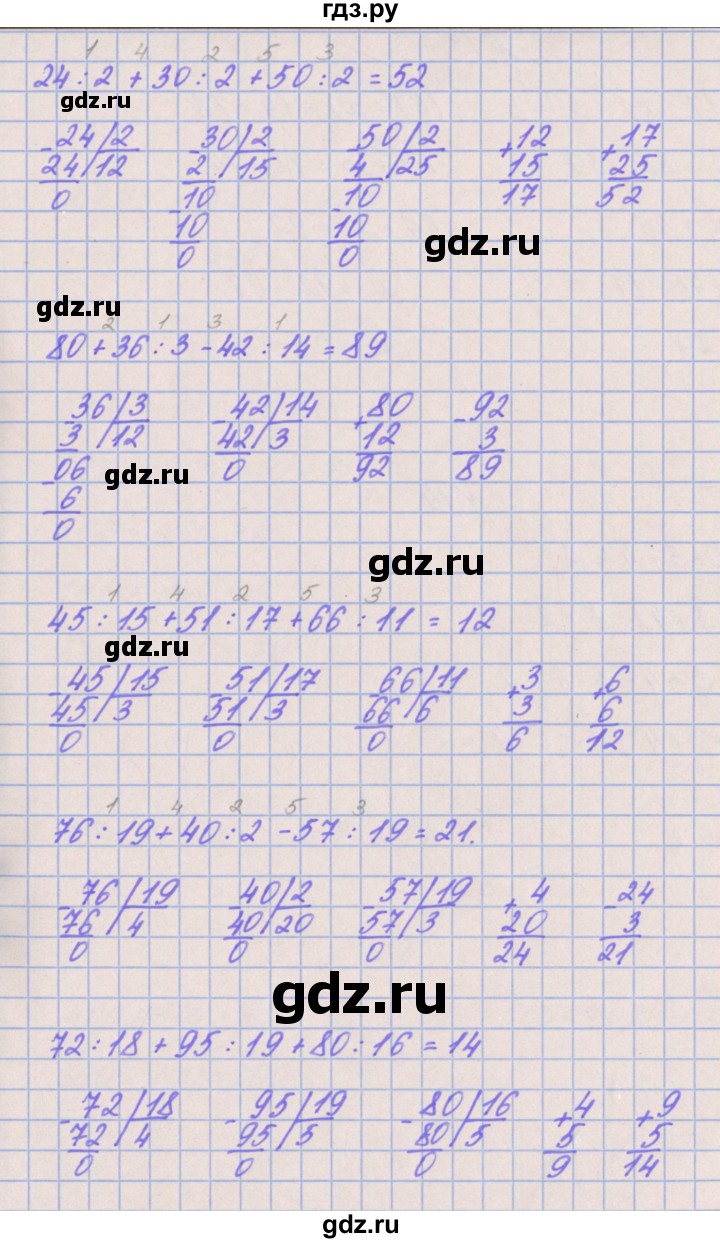 гдз.ру
1 4 2 5 3
24 : 2 + 30 : 2 + 50 : 2 = 52
gdz.ru
- 24 / 2   - 30 / 2   50 / 2   + 12   + 17
24 / 12   2 / 15   4 / 25   15   25
0   10   - 10   17   52
- 10   10
0   0
gdz.ru
gdz.ru
2 1 3 1
80 + 36 : 3 - 42 : 14 = 89
- 36 / 3   - 42 / 14   + 80   - 92
3 / 12   42 / 3   12   3
- 06   0   92   89
6
0
gdz.ru
gdz.ru
1 4 2 5 3
45 : 15 + 51 : 17 + 66 : 11 = 12
gdz.ru
- 45 / 15   - 51 / 17   - 66 / 11   + 3   + 6
45 / 3   51 / 3   66 / 6   3   6
0   0   0   6   12
1 4 2 5 3
76 : 19 + 40 : 2 - 57 : 19 = 21.
- 76 / 19   - 40 / 2   - 57 / 19   + 4   - 24
76 / 4   40 / 20   57 / 3   20   3
0   0   0   24   21
gdz.ru
72 : 18 + 95 : 19 + 80 : 16 = 14
- 72 / 18   - 95 / 19   - 80 / 16   + 4   + 9
72 / 4   95 / 5   80 / 5   5   5
0   0   0   9   14
gdz.ru